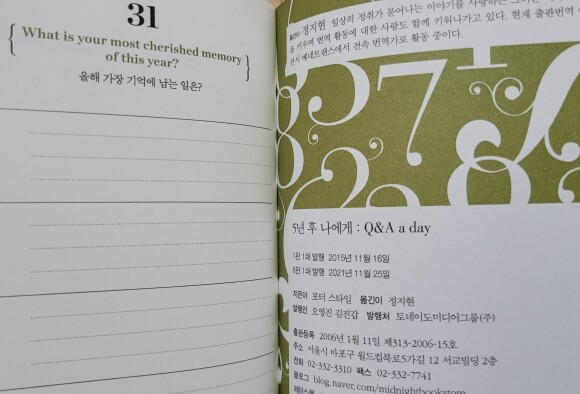 31
What is your most cherished memory
of this year?
올해 가장 기억에 남는 일은?
옮긴이 정지현 일상의 정취가 묻어나는 이야기를 사랑하는
을 키우며 번역 활동에 대한 사랑도 함께 키워나가고 있다. 현재 출판번역
전시 베네트랜스에서 전속 번역가로 활동 중이다.
5년 후 나에게 : Q&A a day
1판 1쇄 발행 2015년 11월 16일
6판 1쇄 발행 2021년 11월 25일
지은이 포터 스타일 옮긴이 정지현
발행인 오영진 김진갑 발행처 토네이도미디어그룹(주)
출판등록 2006년 1월 11일 제313-2006-15호
주소 서울시 마포구 월드컵북로5가길 12 서교빌딩 2층
전화 02-332-3310 팩스 02-332-7741
블로그 blog.naver.com/midnightbookstore
페이스북